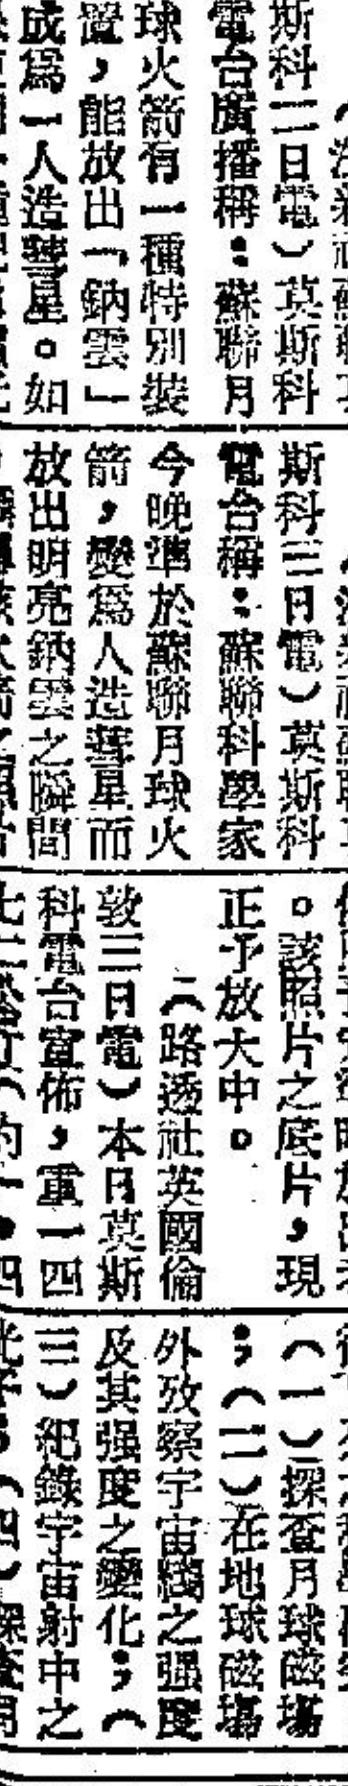 斯科二日電）莫斯科
電台廣播稱：蘇聯月
球火箭有一種特別裝
置，能放出「鈉雲」
成爲一人造彗星。如
斯科三日電）莫斯科
電台稱：蘇聯科學家
今晚準於蘇聯月球火
箭，變爲人造彗星而
放出明亮鈉雲之瞬間
。該照片之底片，現
正予放大中。
（路透社英國倫
敦三日電）本日莫斯
科電台宣佈，重一四
（一）探查月球磁場
；（二）在地球磁場
外攷察宇宙綫之强度
及其强度之變化；（
三）紀錄宇宙射中之